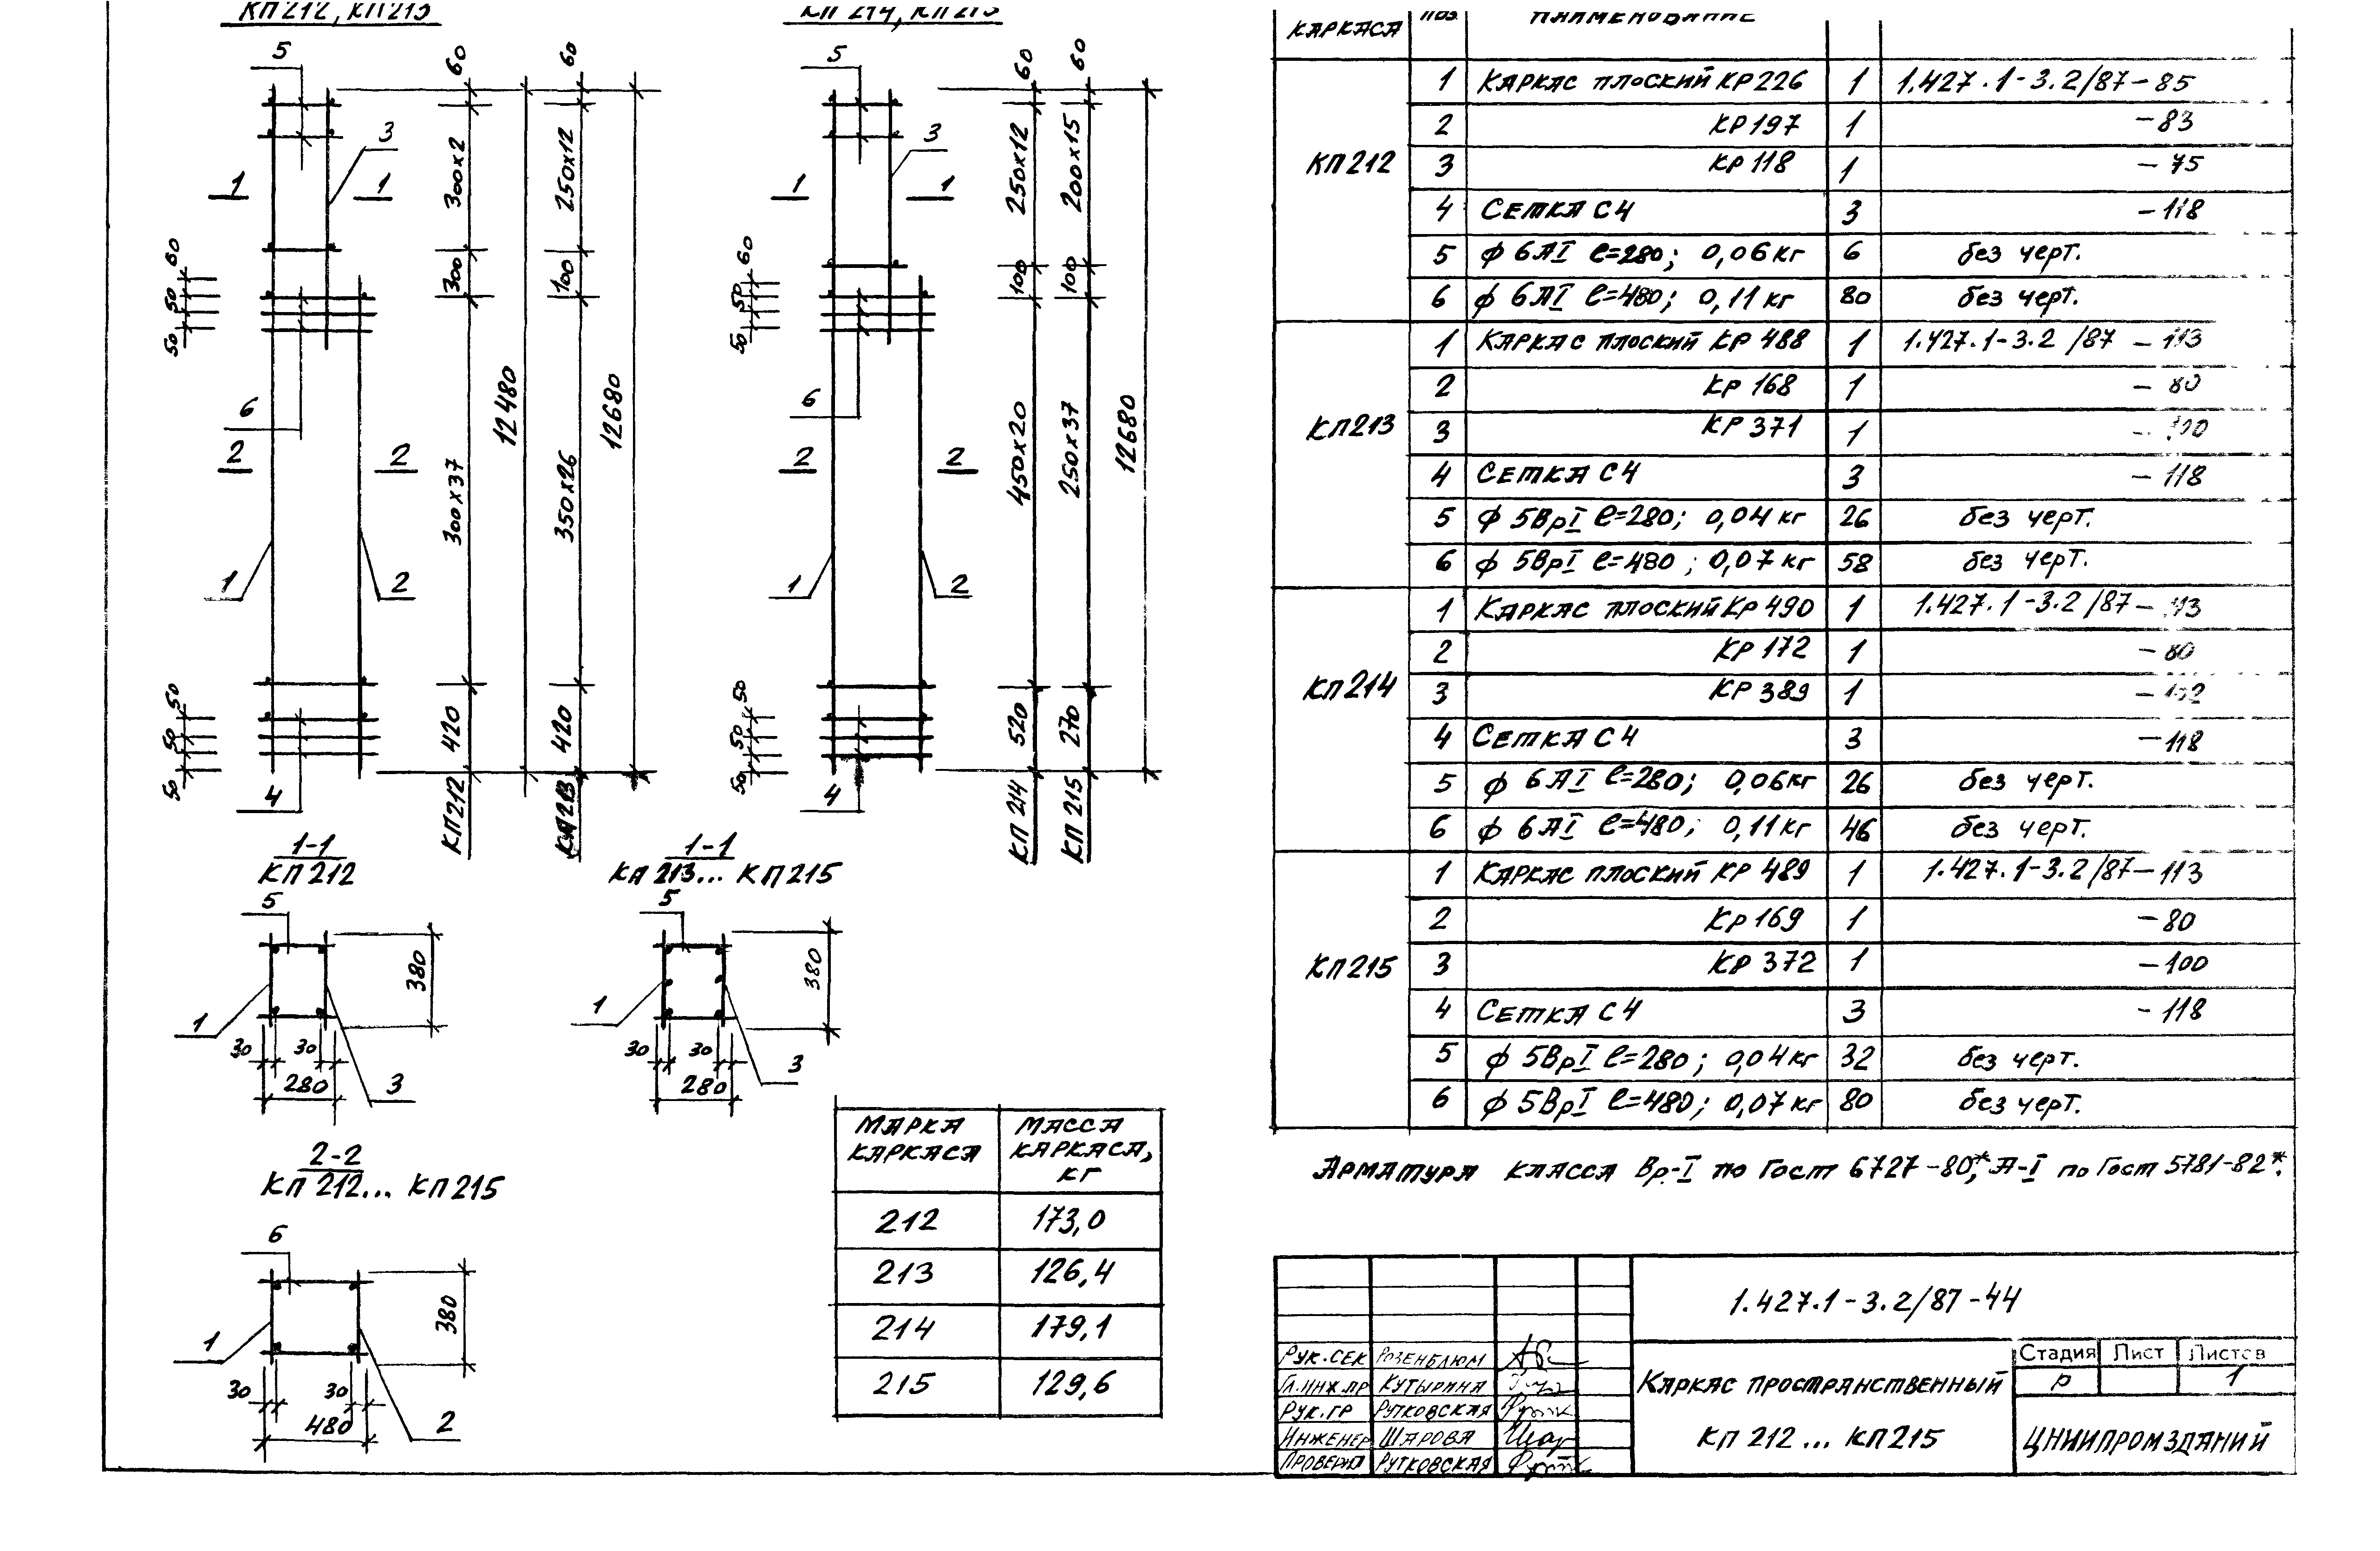 КП 212, КП 213
5
3
1
1
60
300х2
300
300х37
420
КП212
12480
60
250х12
100
350х26
420
12680
60
50
50
6
2
2
1
2
50
50
50
4
КП 214, КП 215
5
3
1
1
60
250х12
100
450х20
520
КП 214
60
200х15
100
250х37
270
КП 215
12680
60
50
50
6
2
2
1
2
50
50
50
4
1-1
КП 212
5
1
3
30
30
280
380
1-1
КП 213... КП 215
5
1
3
30
30
280
380
2-2
КП 212... КП 215
6
1
2
30
30
480
380
МАРКА КАРКАСА
МАССА КАРКАСА, КГ
212 173,0
213 126,4
214 179,1
215 129,6
КАРКАСА ПОЗ. НАИМЕНОВАНИЕ
КП212
1 КАРКАС ПЛОСКИЙ КР 226 1 1.427.1-3.2/87-85
2 КР 197 1 -83
3 КР 118 1 -75
4 СЕТКА С4 3 -118
5 ф 6АI ℓ=280; 0,06 кг 6 без черт.
6 ф 6АI ℓ=480; 0,11 кг 80 без черт.
КП213
1 КАРКАС ПЛОСКИЙ КР 488 1 1.427.1-3.2/87-113
2 КР 168 1 -80
3 КР 371 1
4 СЕТКА С4 3 -118
5 ф 5ВрI ℓ=280; 0,04 кг 26 без черт.
6 ф 5ВрI ℓ=480; 0,07 кг 58 без черт.
КП214
1 КАРКАС ПЛОСКИЙ КР 490 1 1.427.1-3.2/87-113
2 КР 172 1 -80
3 КР 389 1
4 СЕТКА С4 3 -118
5 ф 6АI ℓ=280; 0,06кг 26 без черт.
6 ф 6АI ℓ=480; 0,11 кг 46 без черт.
КП215
1 КАРКАС ПЛОСКИЙ КР 489 1 1.427.1-3.2/87-113
2 КР 169 1 -80
3 КР 372 1 -100
4 СЕТКА С4 3 -118
5 ф 5ВрI ℓ=280; 0,04 кг 32 без черт.
6 ф 5ВрI ℓ=480; 0,07 кг 80 без черт.
АРМАТУРА КЛАССА Вр-I по ГОСТ 6727-80*, А-I по ГОСТ 5781-82*.
1.427.1-3.2/87-44
РУК.СЕК РОЗЕНБЛЮМ
ГЛ.ИНЖ.ПР КУТЫРИНА
РУК.ГР РУТКОВСКАЯ
ИНЖЕНЕР ШАРОВА
ПРОВЕРИЛ РУТКОВСКАЯ
КАРКАС ПРОСТРАНСТВЕННЫЙ
КП 212... КП 215
Стадия Лист Листов
Р 1
ЦНИИПРОМЗДАНИЙ